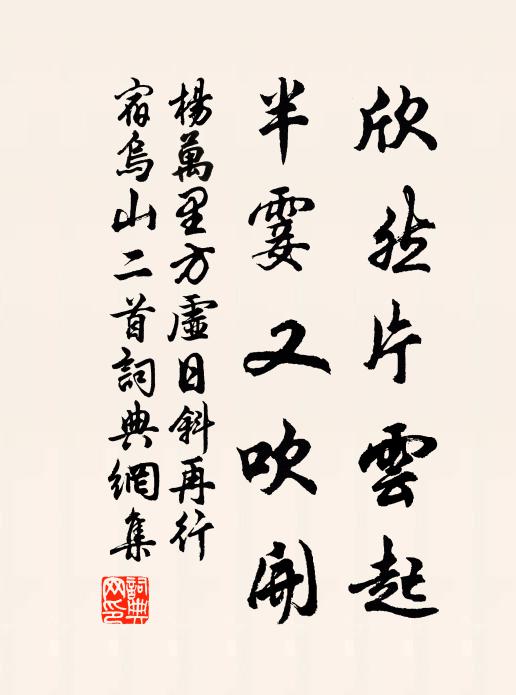 欣然片雲起
半霎又吹開
楊萬里方虛日斜再行
宿烏山二首詞典網集
詞典
网印